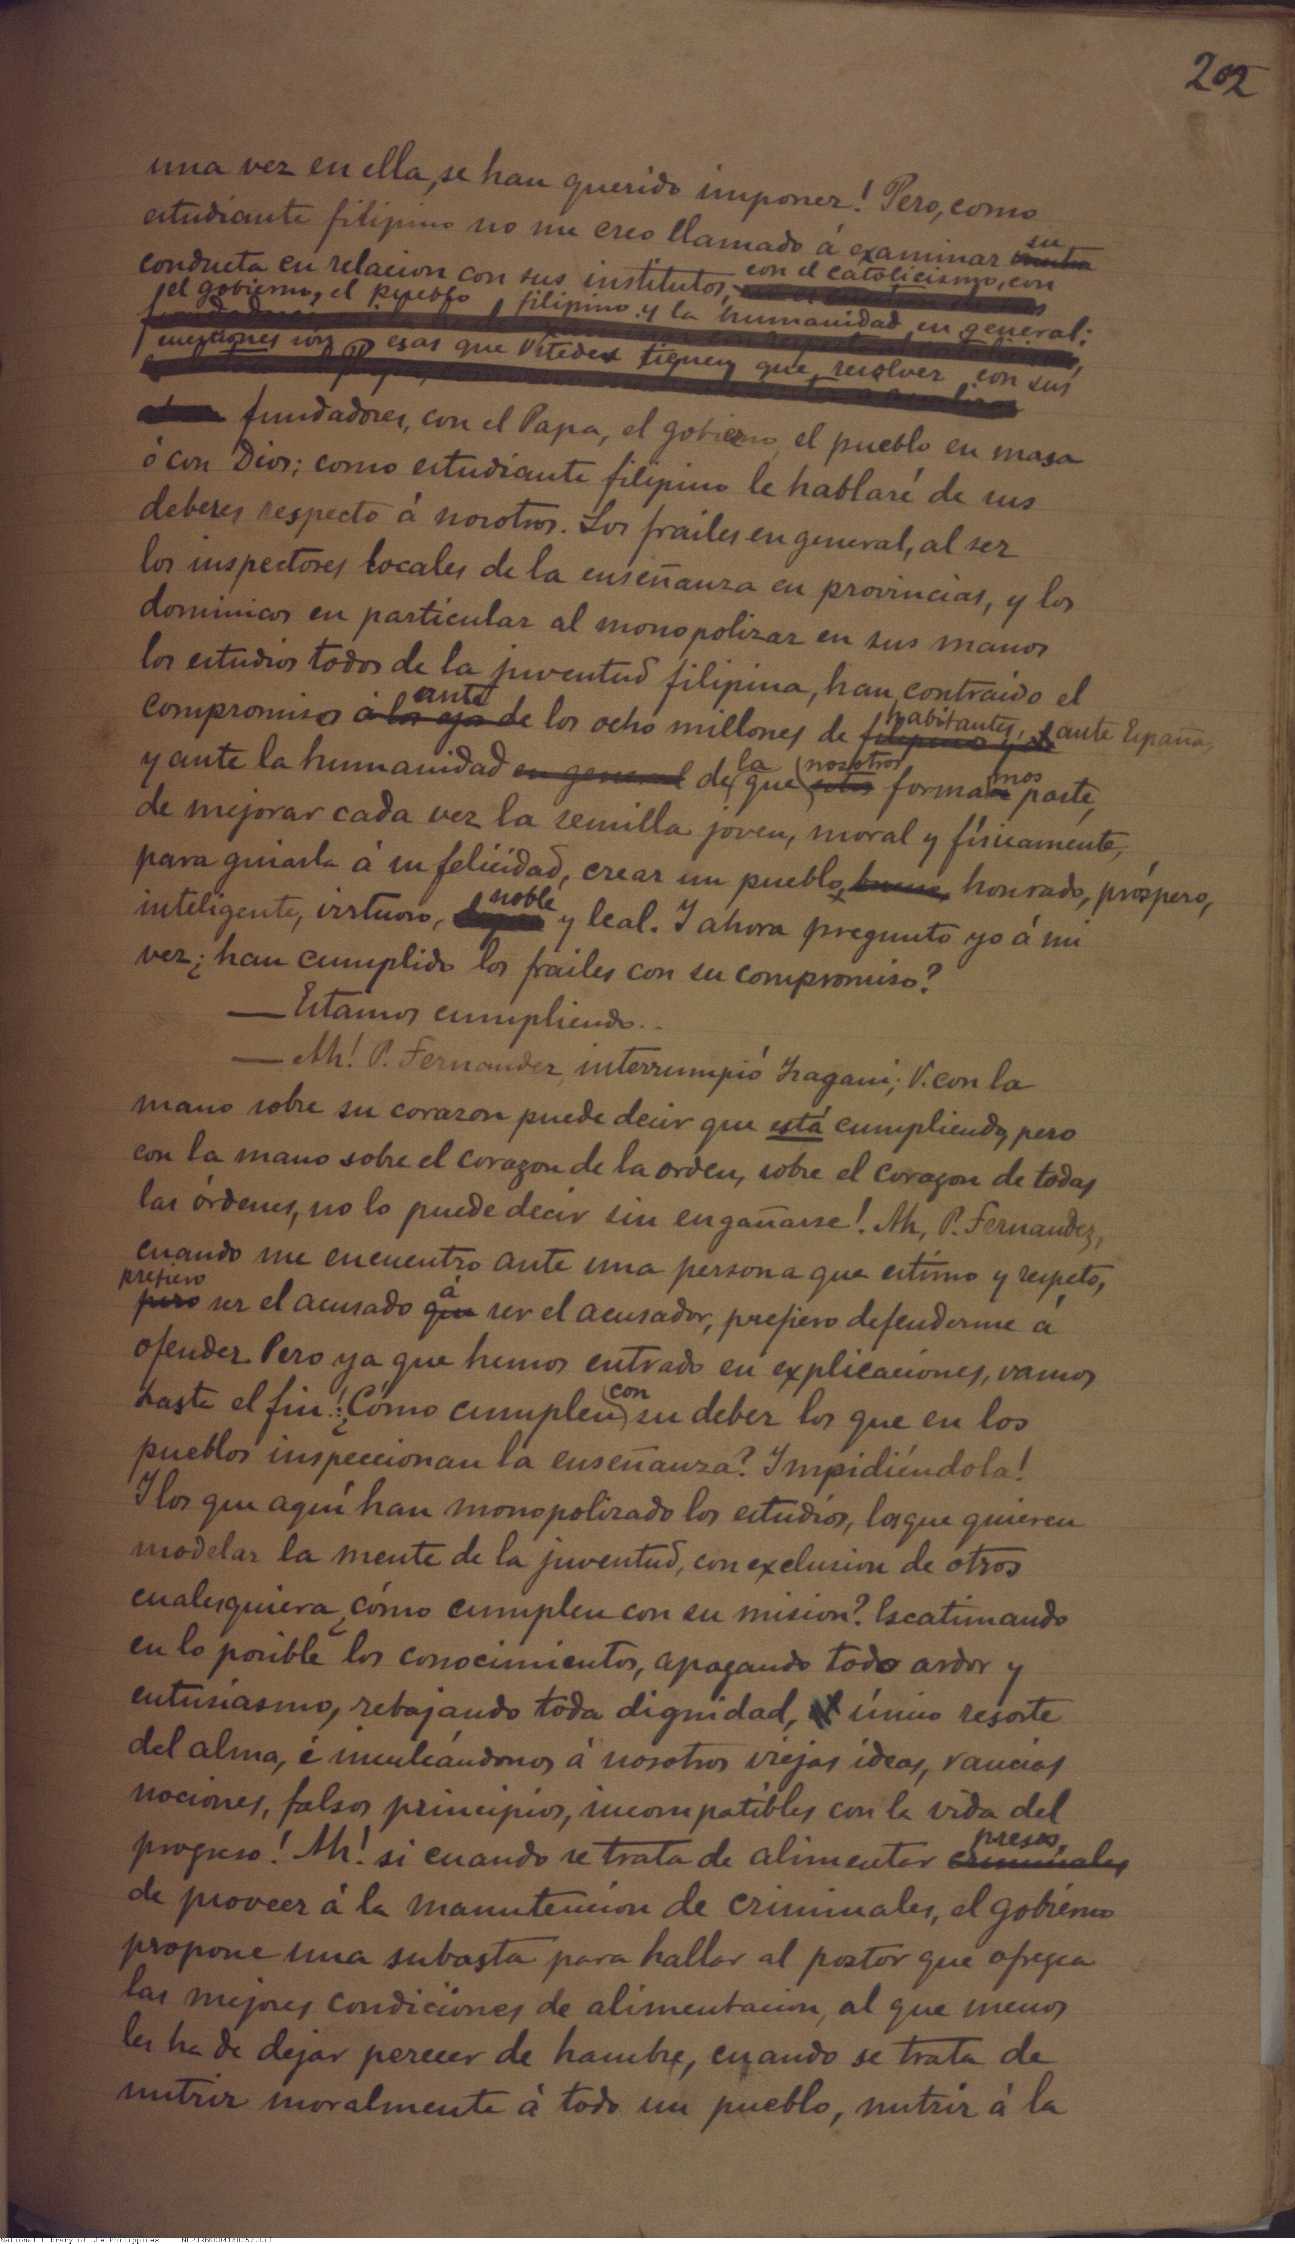 202
una vez en ella, se han querido imponer! Pero, como
estudiante filipino no me creo llamado á examinar su
conducta en relacion con sus institutos, con el catolicismo, con
el gobierno, el pueblo filipino y la humanidad en general:
cuestiones son esas que Vstedes tienen que resolver con sus
fundadores, con el Papa, el gobierno, el pueblo en masa
ó con Dios; como estudiante filipino le hablaré de sus
deberes respecto á nosotros. Los frailes en general, al ser
los inspectores locales de la enseñanza en provincias, y los
dominicos en particular al monopolizar en sus manos
los estudios todos de la juventud filipina, han contraido el
compromiso á los ojos ante de los ocho millones de filipinos y habitantes, ante España,
y ante la humanidad en general de la que estos nosotros formamos parte,
de mejorar cada vez la semilla joven, moral y físicamente,
para guiarla á su felicidad, crear un pueblo, bueno, honrado, próspero,
inteligente, virtuoso, noble y leal. I ahora pregunto yo á mi
vez ¿ han cumplido los frailes con su compromiso?
— Estamos cumpliendo..
— Ah! P. Fernandez, interrumpió Isagani; V. con la
mano sobre su corazon puede decir que está cumpliendo, pero
con la mano sobre el corazon de la orden, sobre el corazon de todas
las órdenes, no lo puede decir sin engañarse! Ah, P. Fernandez,
cuando me encuentro ante una persona que estimo y respeto,
prefiero
pero ser el acusado que á ser el acusador, prefiero defenderme á
ofender. Pero ya que hemos entrado en explicaciones, vamos
hasta el fin! ¿Cómo cumplen con su deber los que en los
pueblos inspeccionan la enseñanza? Impidiéndola!
I los que aquí han monopolizado los estudios, los que quieren
modelar la mente de la juventud, con exclusion de otros
cualesquiera, ¿cómo cumplen con su mision? Escatimando
en lo posible los conocimientos, apagando todo ardor y
entusiasmo, rebajando toda dignidad, único resorte
del alma, é inculcándonos á nosotros viejas ideas, rancias
nociones, falsos principios, incompatibles con la vida del
progreso! Ah! si cuando se trata de alimentar criminales presos,
de proveer á la manutencion de criminales, el gobierno
propone una subasta para hallar al postor que ofrezca
las mejores condiciones de alimentacion, al que menos
les ha de dejar perecer de hambre, cuando se trata de
nutrir moralmente á todo un pueblo, nutrir á la